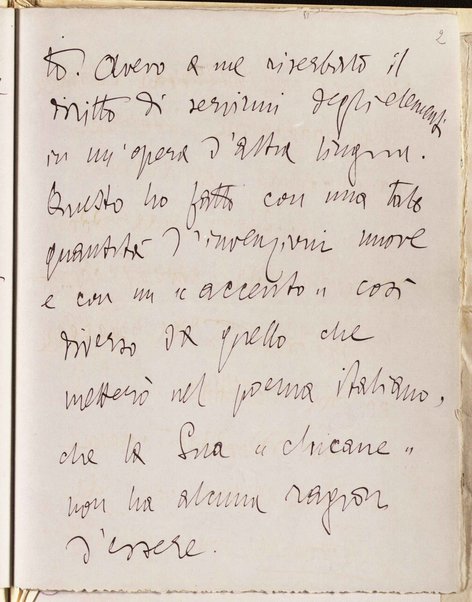 2
to. Avevo a me riserbato il
diritto di servirmi degli elementi
in un'opera d'altra lingua.
Questo ho fatto con una tale
quantità d'invenzioni nuove
e con un "accento" così
diverso da quello che
metterò nel poema italiano,
che la Sua "chicane"
non ha alcuna ragion
d'essere.